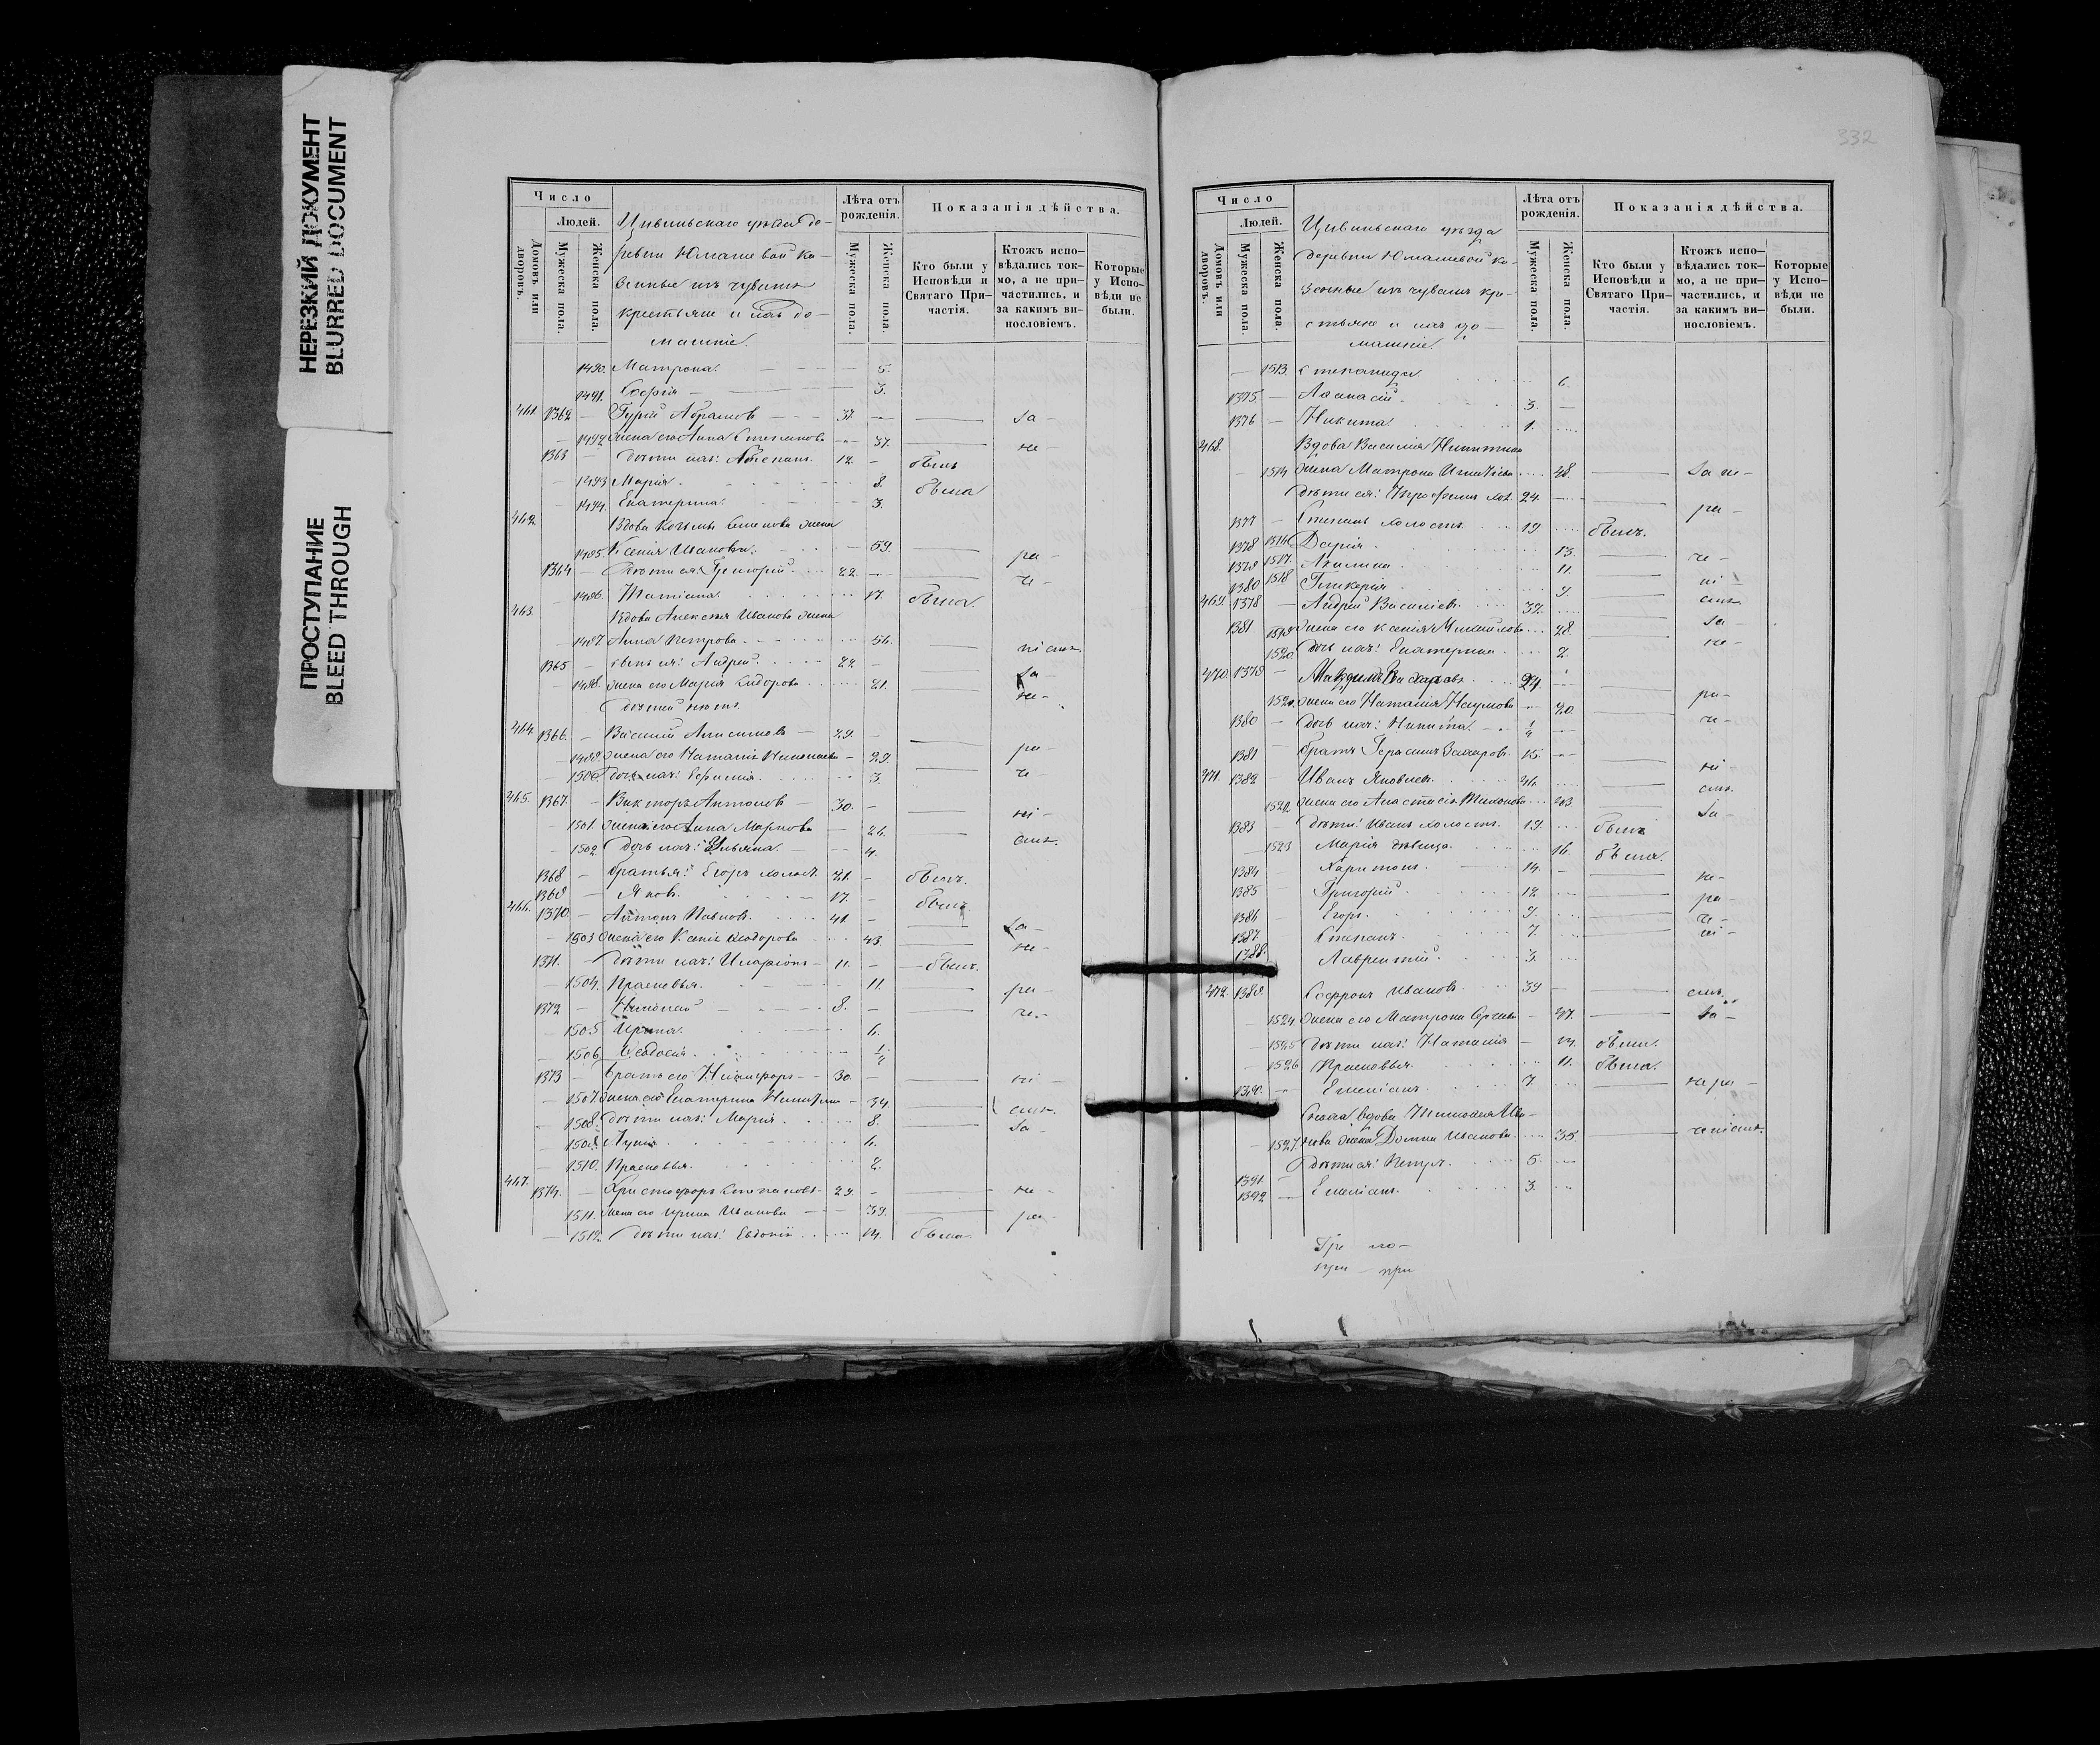 НЕРЕЗКИЙ ДОКУМЕНТ
BLURRED DOCUMENT
ПРОСТУПАНИЕ
BLEED THROUGH
Число
Людей.
Домовъ или дворовъ.
Мужеска пола.
Женска пола.
Цивильскаго уѣзда де-
ревни Юмашевой ка-
зенные изъ чувашъ
крестьяне и ихъ до-
машніе.
Лѣта отъ рожденія.
Мужеска пола.
Женска пола.
Показанія дѣйства.
Кто были у Исповѣди и Святаго При-частія.
Ктожъ испо-вѣдались ток-мо, а не при-частились, и за какимъ ви-нословіемъ.
Которые у Испо-вѣди не были.
1490. Матрона. 5.
1491. Софія 3.
461. 1362 Гурій Абрамовъ 37. За-
1492 жена его Анна Степанова 37. не-
1363 Дѣти ихъ: 12. былъ
1493 Марія. 8. была
1494. Екатерина. 3.
462. Вдова Козьмы Семенова жена
1495. Ксенія Иванова. 59. ра-
1364 Дѣти ея: Григорій. 22. че-
1496. Татіана. 17. была.
463. Вдова Алексѣя Иванова жена
1497. Анна Петрова. 56. ніемъ.
1365 сынъ ея: Андрей. 22. За-
1498. жена его Марія Сидорова 21. не-
Дѣтей нѣтъ.
464. 1366. Василій Анисимовъ 29. ра-
1499. жена его Наталія 29. че-
1500 дочь ихъ: 3.
465. 1367. Викторъ Антоновъ 30. ні-
1501. жена его Анна Маркова 26. емъ.
1502. дочь ихъ: Ульяна. 4.
1368 братья: Егоръ холостъ 21. былъ.
1369 Яковъ. 17. былъ.
466. 1370. Антонъ Павловъ. 41. За-
1503 жена его Ксенія Ѳеодорова 43. не-
1371. Дѣти ихъ: Иларіонъ 11. былъ.
1504. Прасковья. 11. ра-
1372 Николай 8. че-
1505 Ирина. 6.
1506. Ѳеодосія. 1/2
1373 братъ его Никифоръ 30. ні-
1507. жена его Екатерина Никитина 34. емъ.
1508. дѣти ихъ: Марія. 8. За-
1509. 6.
1510. Прасковья. 2.
467. 1374. Христофоръ Степановъ 29. не-
1511. жена его Ирина Иванова 39. ра-
1512. дѣти ихъ: Евдокія 14. была.
332
Число
Людей.
Домовъ или дворовъ.
Мужеска пола.
Женска пола.
Цивильскаго уѣзда
деревни Юмашевой ка-
зенные изъ чувашъ кре-
стьяне и ихъ до-
машніе.
Лѣта отъ рожденія.
Мужеска пола.
Женска пола.
Показанія дѣйства.
Кто были у Исповѣди и Святаго При-частія.
Ктожъ испо-вѣдались ток-мо, а не при-частились, и за какимъ ви-нословіемъ.
Которые у Испо-вѣди не были.
1513. Степанида. 6.
1375. Аѳанасій. 3.
1376 Никита. 1.
468. Вдова Василія Никитина
1514 жена Матрона Игнатьева 48. За не-
дѣти ея: Трофимъ хол. 24. ра-
1377 Степанъ холостъ. 19. былъ.
1378 1516 Дарія. 13. че-
1379 1517. Акилина 11. ні-
1380 1518 Гликерія 9. емъ.
469. 1378 Андрей Васильевъ. 39. За-
1381 1519 жена его Ксенія Михайлова 28. не-
1520. дочь ихъ: Екатерина 2.
470. 1379 Захаровъ. 24. ра-
1521. жена его Наталія Наумова 20. че-
1380 Никита. 1/2
1381 братъ Герасимъ Захаровъ. 15. ні-
471. 1382 Иванъ Яковлевъ. 46. емъ.
1522 жена его Анастасія Тихонова 43 За-
1383 дѣти: Иванъ холостъ. 19. былъ
1523 Марія дѣвица. 16. была.
1384 Харитонъ. 14. не-
1385 Григорій. 12. ра-
1386 Егоръ. 9. че-
1387. Степанъ. 7. ні-
1388. Лаврентій. 3.
472. 1389. Софронъ Ивановъ 39 емъ.
1524. жена его Матрона 47. За-
1525 дѣти ихъ: Наталія 14. была.
1526 Прасковья. 11. была.
1390. Емеліанъ. 7. нера-
Сноха вдова Тимоѳея Ива-
1527. нова жена Домна Иванова. 35. ченіемъ.
дѣти ея: Петръ. 5.
1391
1392 Емеліанъ. 3.